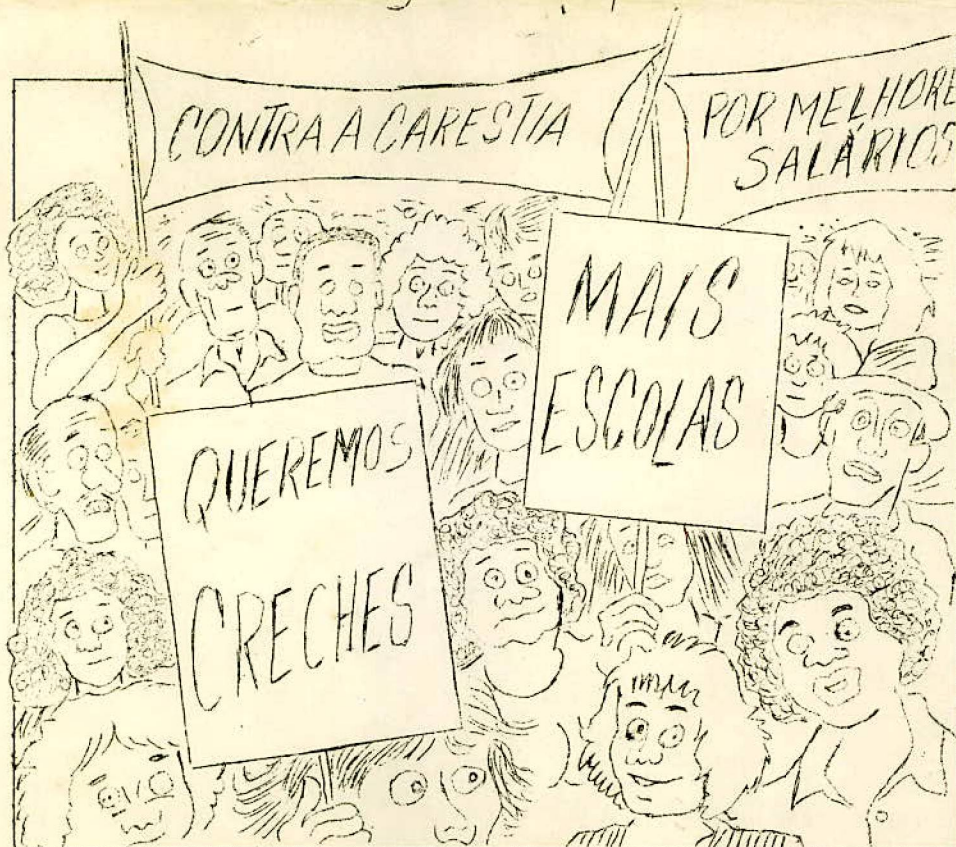 CONTRA A CARESTIA
POR MELHORE
SALÁRIOS
MAIS
ESCOLAS
QUEREMOS
CRECHES